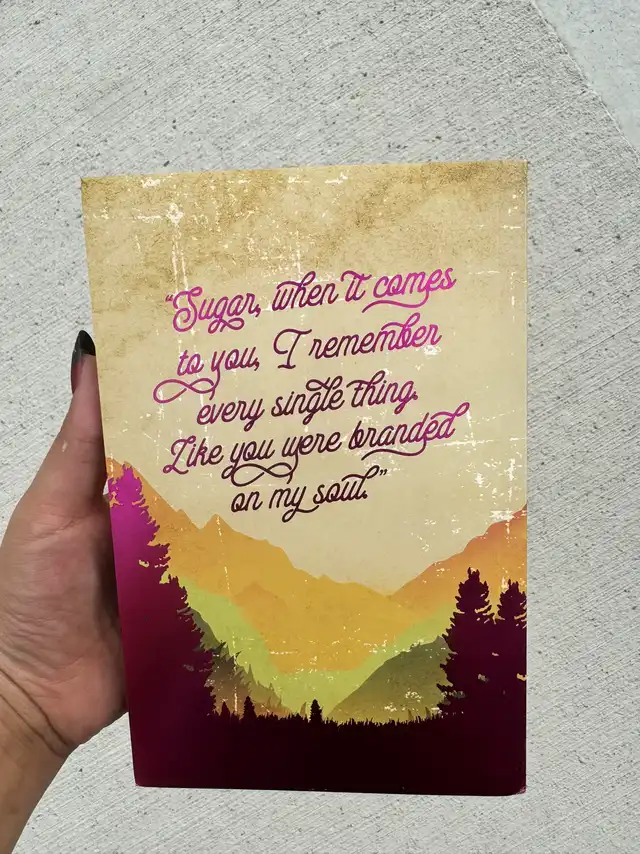 “Sugar, when it comes
to you, I remember
every single thing.
Like you were branded
on my soul.”